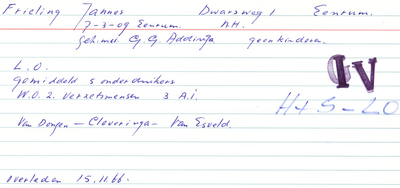 Frieling Jannes Dwarsweg 1 Eenrum.
7-3-09 Eenrum. N.H.
geh. met G.G. Addinga geen kinderen.
L.O.
gemiddeld 5 onderduikers
W.O.2. verzetsmensen 3 A.i.
IV
H+S-LO
Van Dongen - Cleveringa - Van Esveld.
overleden 15.11.66.